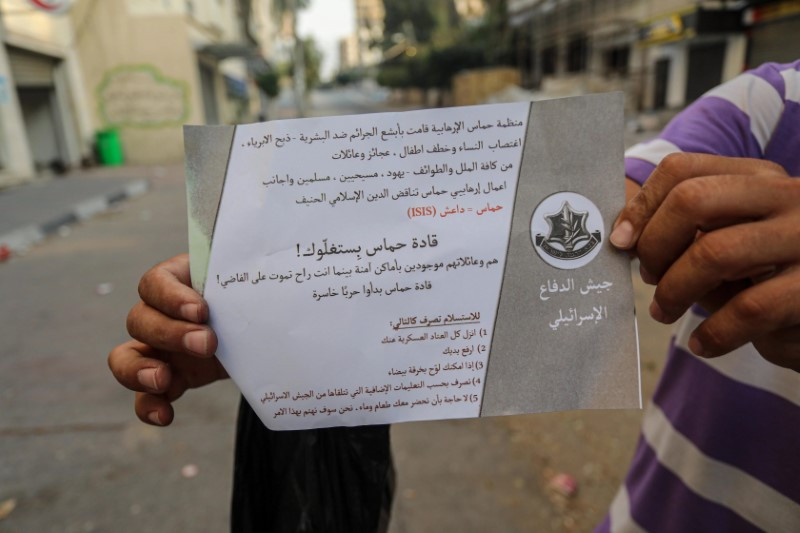 منظمة حماس الإرهابية قامت بأبشع الجرائم ضد البشرية - ذبح الابرياء ،
اغتصاب النساء وخطف اطفال ، عجائز وعائلات
من كافة الملل والطوائف - يهود ، مسيحيين ، مسلمين واجانب
اعمال إرهابيي حماس تناقض الدين الإسلامي الحنيف
حماس = داعش (ISIS)
قادة حماس بِستغلّوك!
هم وعائلاتهم موجودين بأماكن آمنة بينما انت راح تموت على الفاضي!
قادة حماس بدأوا حربًا خاسرة
للاستسلام تصرف كالتالي:
1) انزل كل العتاد العسكرية عنك
2) ارفع يديك
3) إذا امكنك لوّح بخرقة بيضاء
4) تصرف بحسب التعليمات الإضافية التي تتلقاها من الجيش الاسرائيلي
5) لا حاجة بأن تحضر معك طعام وماء. نحن سوف نهتم بهذا الامر
جيش الدفاع
الإسرائيلي